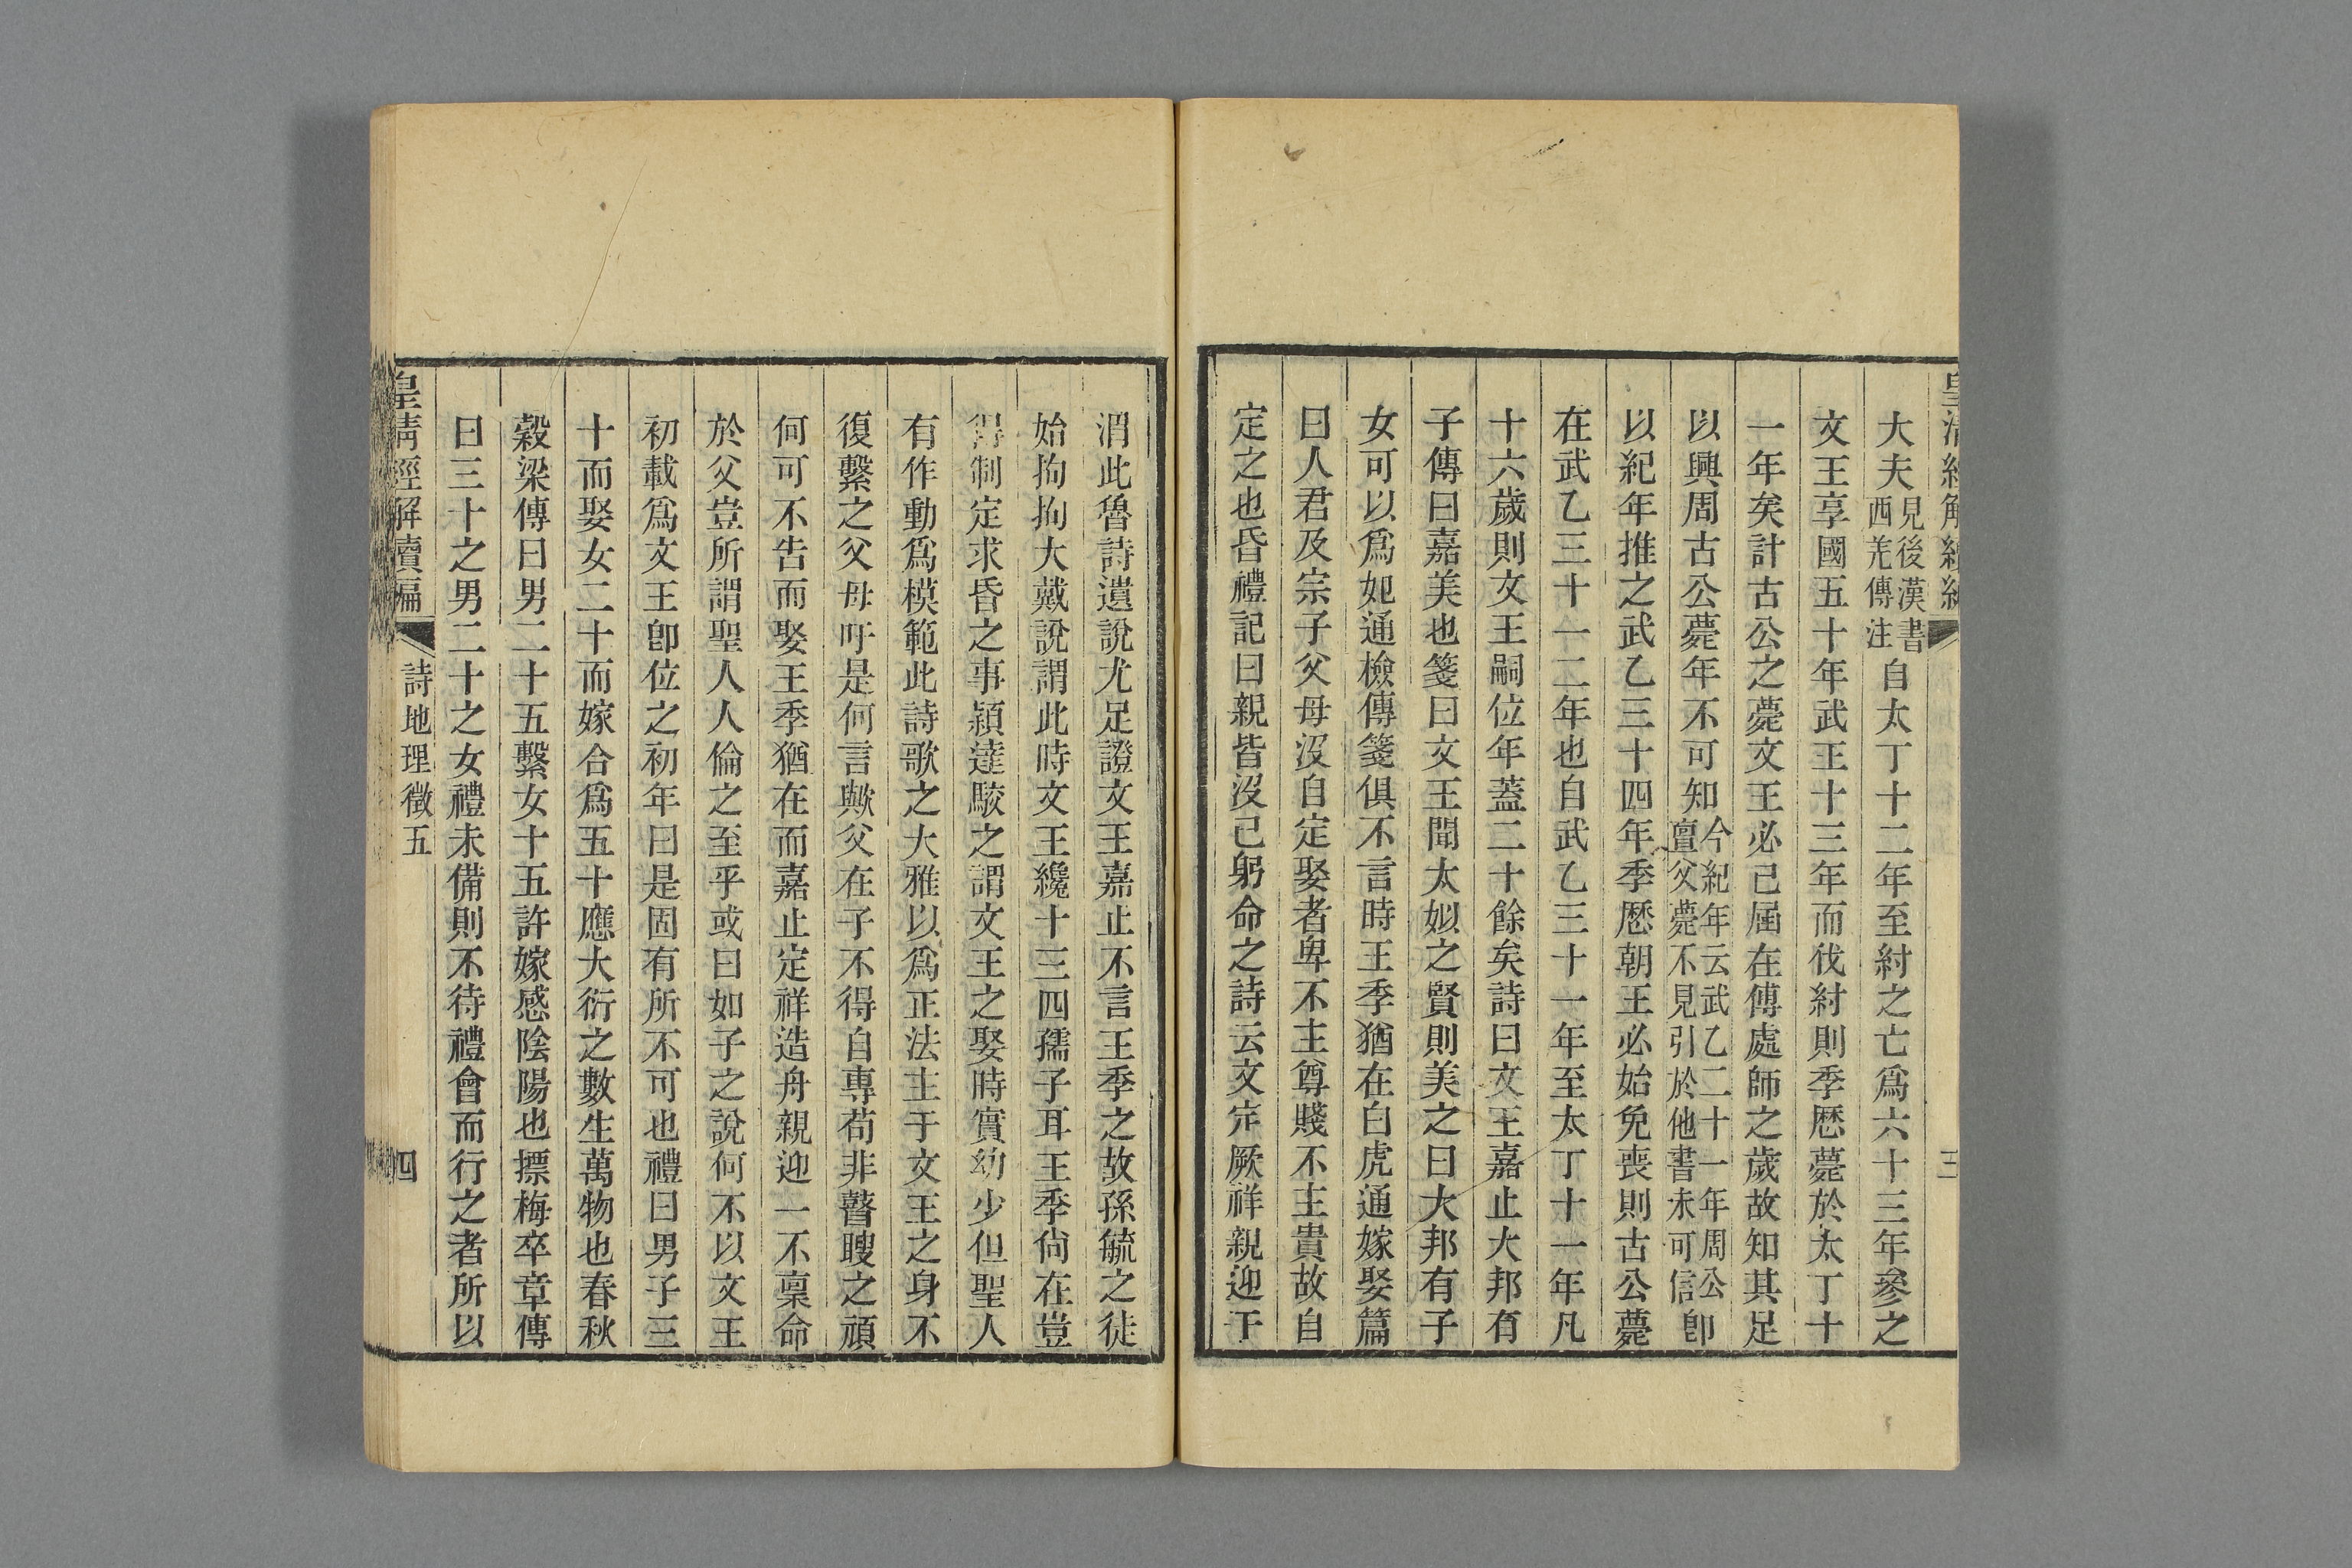 大夫見後漢書西羌傳注自太丁十二年至紂之亡爲六十三年參之
文王享國五十年武王十三年而伐紂則季歷薨於太丁十
一年矣計古公之薨文王必已屆在傅處師之歲故知其足
以興周古公薨年不可知今紀年云武乙二十一年周公亶父薨不見引於他書未可信卽
以紀年推之武乙三十四年季歷朝王必始免喪則古公薨
在武乙三十一二年也自武乙三十一年至太丁十一年凡
十六歲則文王嗣位年蓋二十餘矣詩曰文王嘉止大邦有
子傳曰嘉美也箋曰文王聞太姒之賢則美之曰大邦有子
女可以爲妃通檢傳箋俱不言時王季猶在白虎通嫁娶篇
曰人君及宗子父母沒自定娶者卑不主尊賤不主貴故自
定之也昏禮記曰親皆沒己躬命之詩云文定厥祥親迎于
渭此魯詩遺說尤足證文王嘉止不言王季之故孫毓之徒
始拘拘大戴說謂此時文王纔十三四孺子耳王季尙在豈
得制定求昏之事穎達駮之謂文王之娶時實幼少但聖人
有作動爲模範此詩歌之大雅以爲正法主于文王之身不
復繫之父母吁是何言歟父在子不得自專苟非瞽瞍之頑
何可不告而娶王季猶在而嘉止定祥造舟親迎一不稟命
於父豈所謂聖人人倫之至乎或曰如子之說何不以文王
初載爲文王卽位之初年曰是固有所不可也禮曰男子三
十而娶女二十而嫁合爲五十應大衍之數生萬物也春秋
穀梁傳曰男二十五繫女十五許嫁感陰陽也摽梅卒章傳
曰三十之男二十之女禮未備則不待禮會而行之者所以
皇清經解續編
詩地理徵五
四